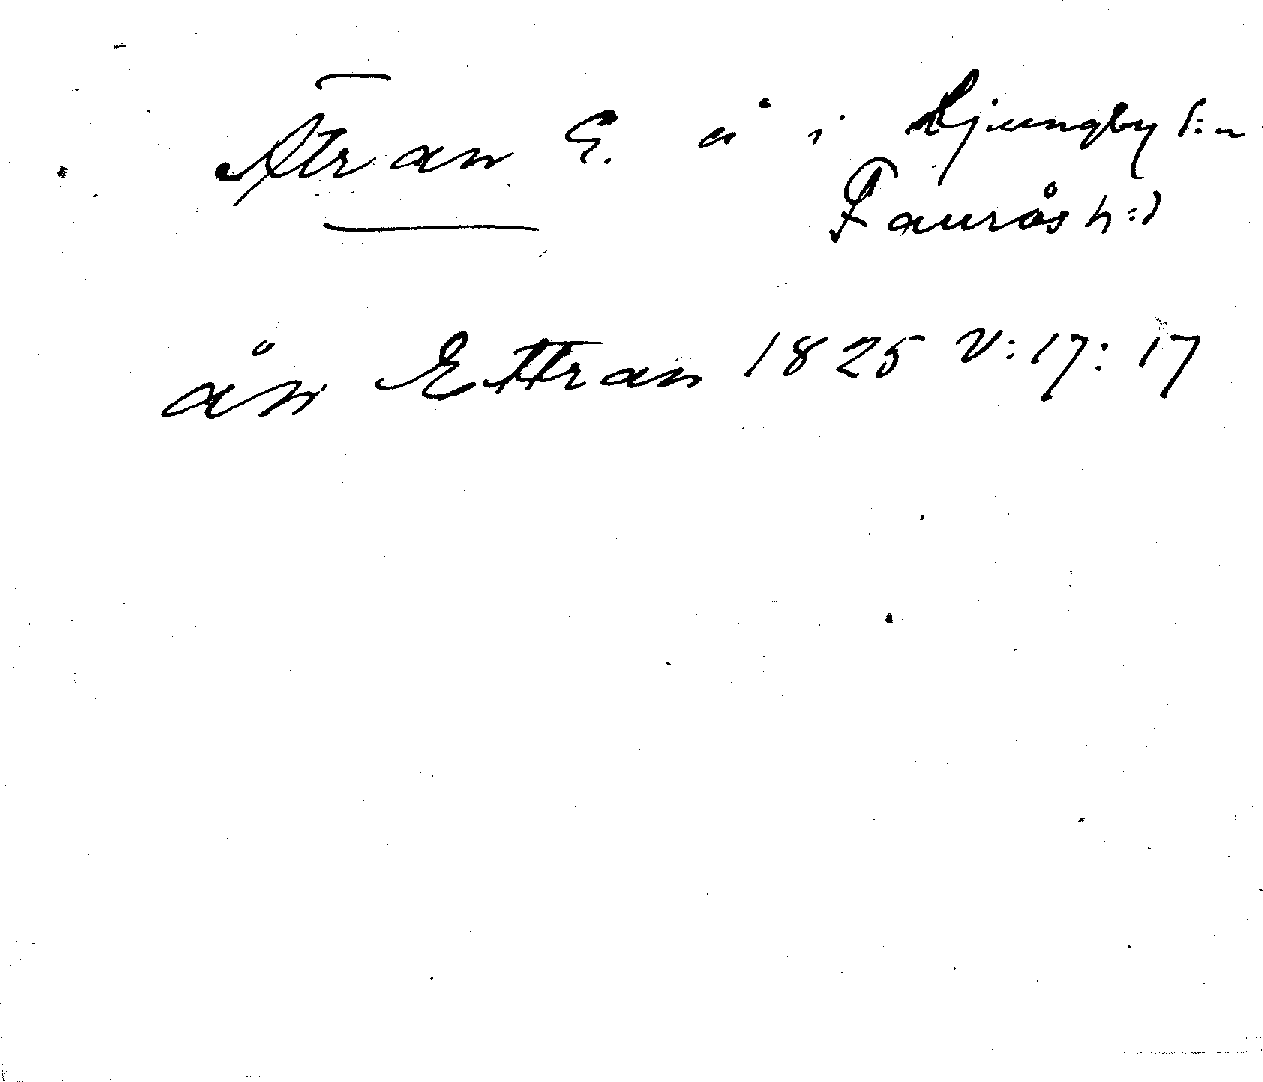 Ätran E. å i Ljungby s:n
Faurås h:d
ån Ettran 1825 V:17:17